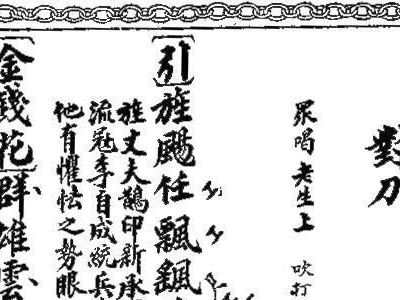 對刀
眾唱老生上 吹打
〔引〕旌颺任飄颻
旌丈夫鵲印新承
流冦李自成統兵
他有懼怯之勢眼
〔金錢花〕群雄雲